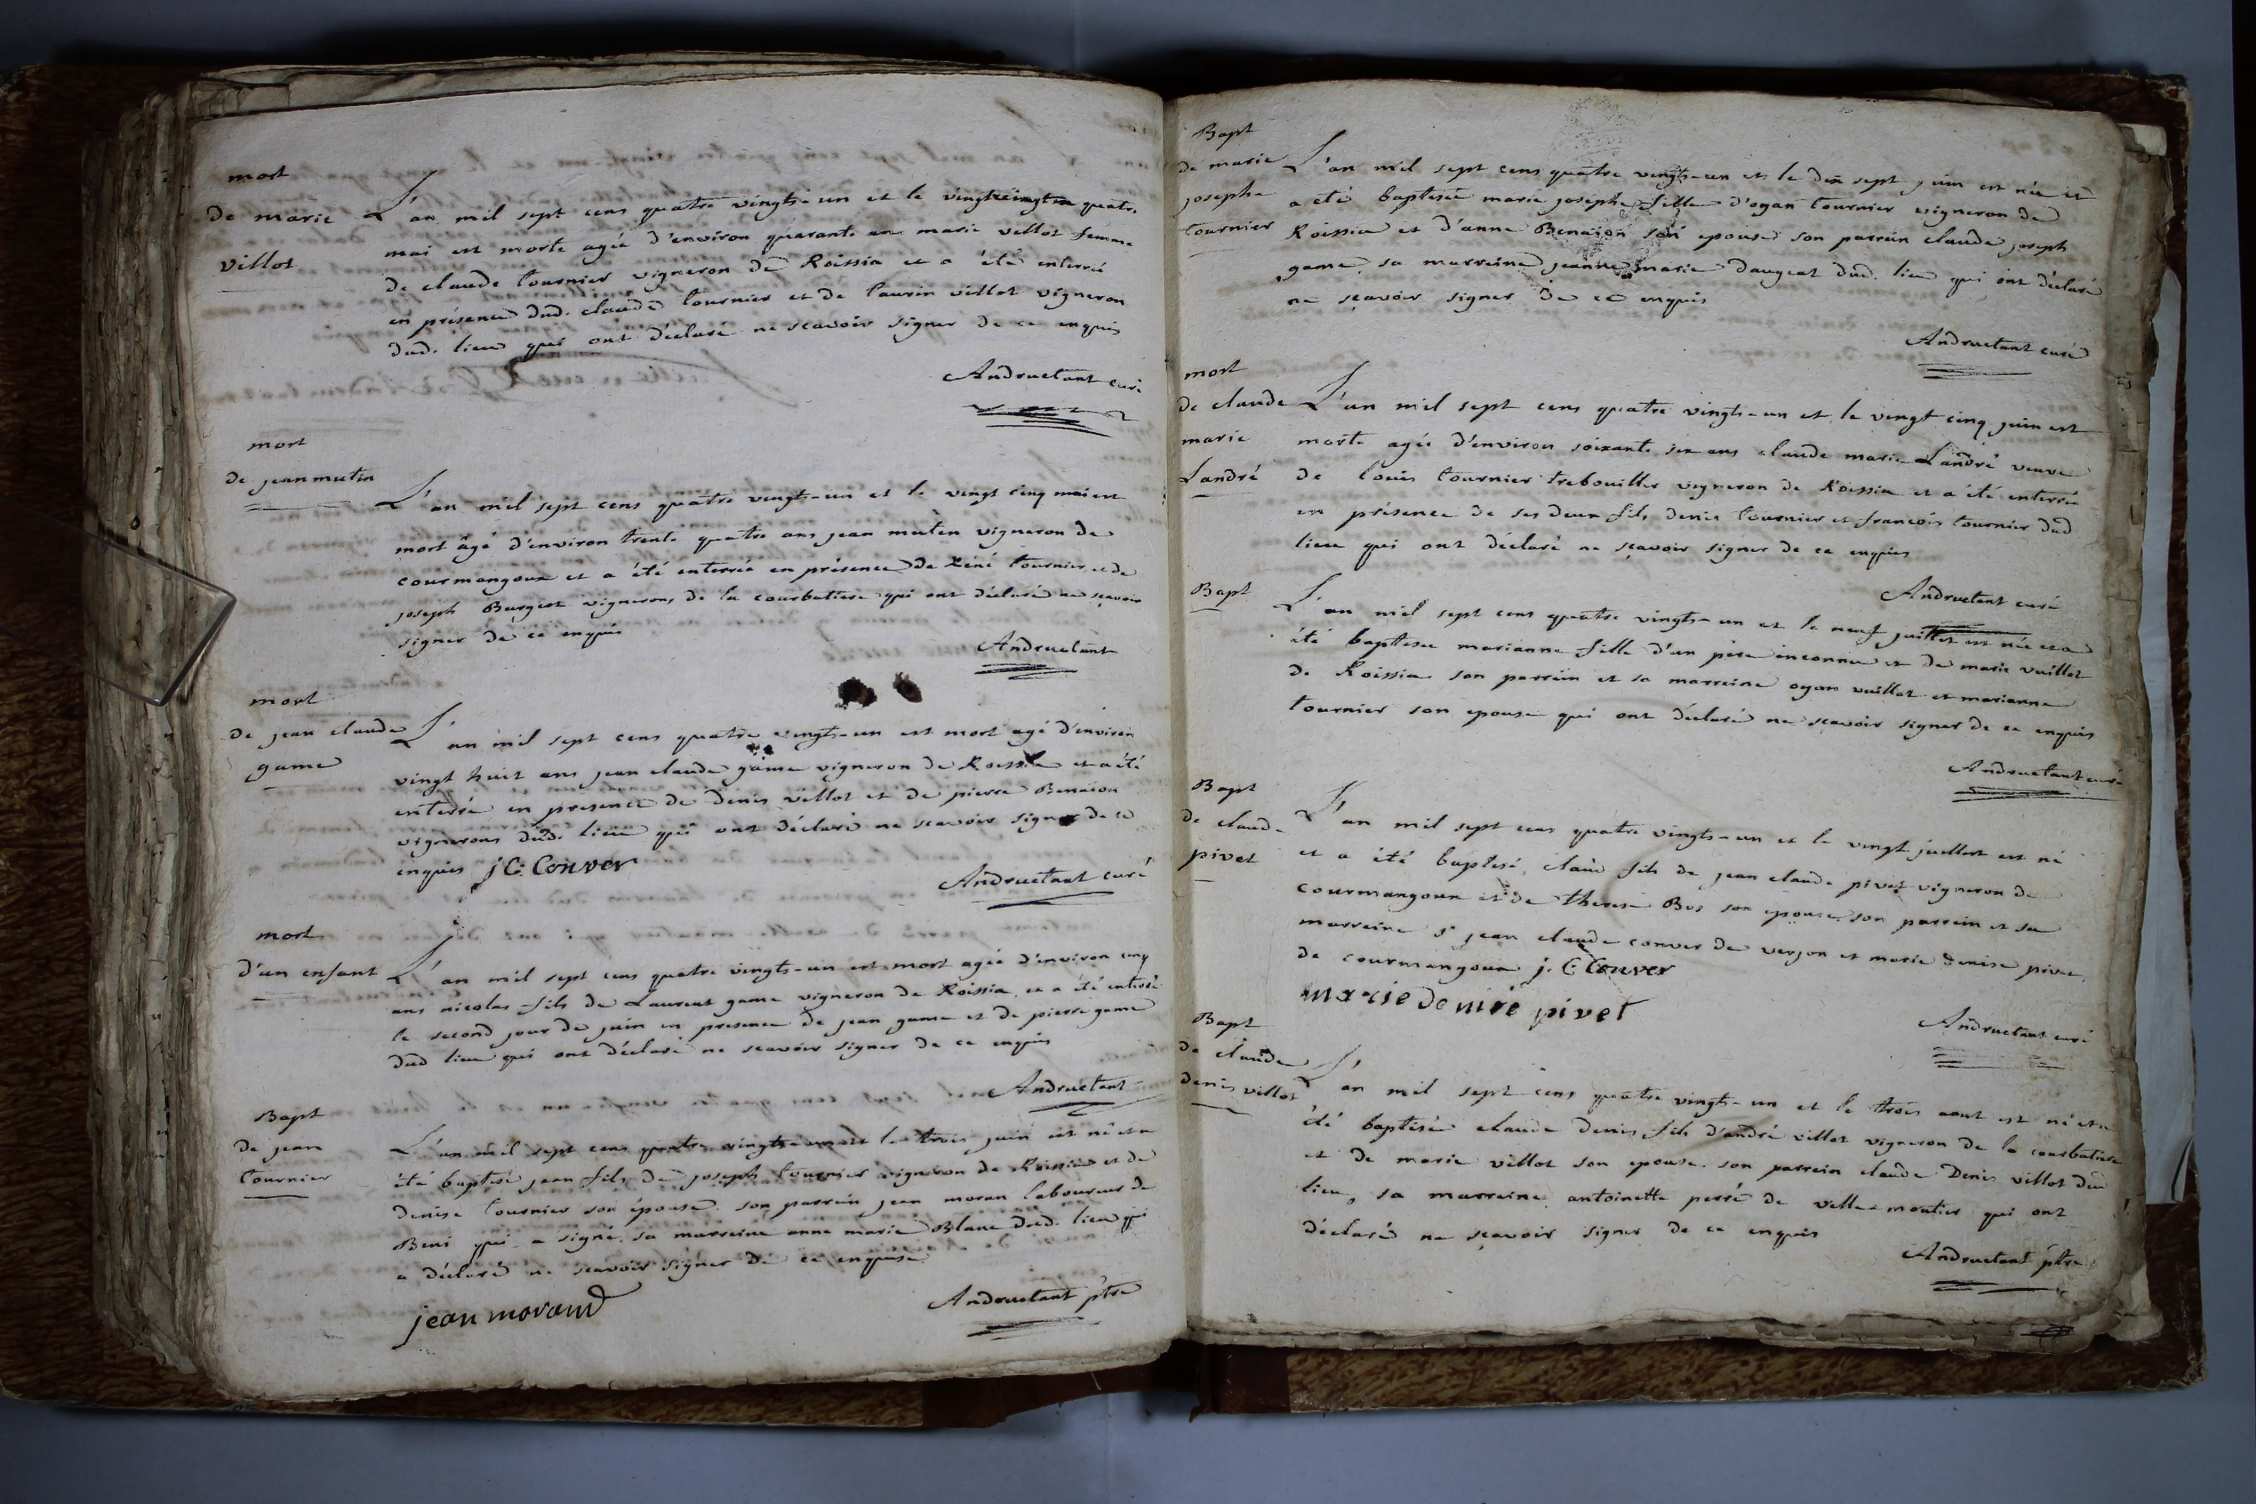 mort
de marie
villot
L'an mil sept cens quatre vingts-un et le quatre
mai est morte agée d'environ quarante ans marie villot femme
de claude tournier vigneron de Roissia et a été enterrée
en présence dud. claude tournier et de laurin villot vigneron
dud. lieu qui ont déclaré ne sçavoir signer de ce enquis
Andruetant curé
mort
de jean mutin
L'an mil sept cens quatre vingts-un et le vingt cinq mai est
mort âgé d'environ trente quatre ans jean mutin vigneron de
courmangoux et a été enterrée en présence de Réné tournier et de
joseph Burgeot vignerons de la courbatiere qui ont déclaré ne sçavoir
signer de ce enquis
Andruetant
mort
de jean claude
game
L'an mil sept cens quatre vingts-un est mort agé d'environ
vingt huit ans jean claude game vigneron de Roissia et a été
enterré en presence de denis villot et de pierre Benaion
vignerons dud. lieu qui ont déclaré ne scavoir signer de ce
enquis j C: Conver
Andruetant curé
mort
d'un enfant
L'an mil sept cens quatre vingts-un est mort agée d'environ cinq
ans nicolas fils de Laurent game vigneron de Roissia et a été enterré
le second jour de juin en presence de jean game et de pierre game
dud lieu qui ont déclaré ne scavoir signer de ce enquis
Andruetant
Bapt
de jean
tournier
L'an mil sept cens quatre vingts-un et le trois juin est né et a
été baptisé jean fils de joseph tournier vigneron de Roissia et de
denise tournier son épouse. son parrein jean moran laboureur de
Beni qui a signé, sa marreine anne marie Blanc dud. lieu qui
a déclaré ne scavoir signer de ce enquise
jean morand
Andruetant ptre
Bapt
de marie
josephe
tournier
L'an mil sept cens quatre vingts-un et le dix sept juin est née et
a été baptisée marie josephe fille d'oyan tournier vigneron de
Roissia et d'anne Benaion son epouse son parrein claude joseph
game, sa marreine jeanne marie daugeat dud. lieu qui ont déclaré
ne sçavoir signer de ce enquis
Andruetant curé
mort
de claude
marie
Landré
L'an mil sept cens quatre vingts-un et le vingt cinq juin est
morte agée d'environ soixante six ans claude marie Landré veuve
de louis tournier trebouillet vigneron de Roissia et a été enterrée
en présence de ses deux fils denis tournier et françois tournier dud
lieu qui ont déclaré ne sçavoir signer de ce enquis
Andruetant curé
Bapt
L'an mil sept cens quatre vingts-un et le neuf juillet est née et a
été baptisée marianne fille d'un père inconnu et de marie vuillot
de Roissia son parrein et sa marreine oyan vuillot et marianne
tournier son epouse qui ont déclaré ne sçavoir signer de ce enquis
Andruetant curé
Bapt
de claude
pivet
L'an mil sept cens quatre vingts-un et le vingt juillet est né
et a été baptisé, claude fils de jean claude pivet vigneron de
courmangoux et de therese Bos son epouse, son parrein et sa
marreine sr jean claude conver de verjon et marie denise pivet
de courmangoux j. C Conver
marie denise pivet
Andruetant curé
Bapt
de claude
denis villot
L'an mil sept cens quatre vingts-un et le trois aout est né et a
été baptisé claude denis fils d'andré villot vigneron de la courbatiere
et de marie villot son epouse. son parrein claude Denis villot dud
lieu, sa marreine antoinette perré de velle-moutier qui ont
déclaré ne sçavoir signer de ce enquis
Andruetant ptre